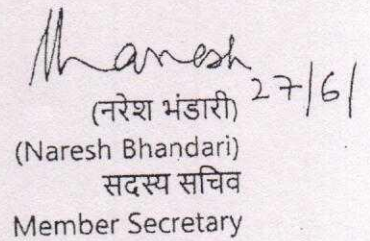 27/6/
(नरेश भंडारी)
(Naresh Bhandari)
सदस्य सचिव
Member Secretary